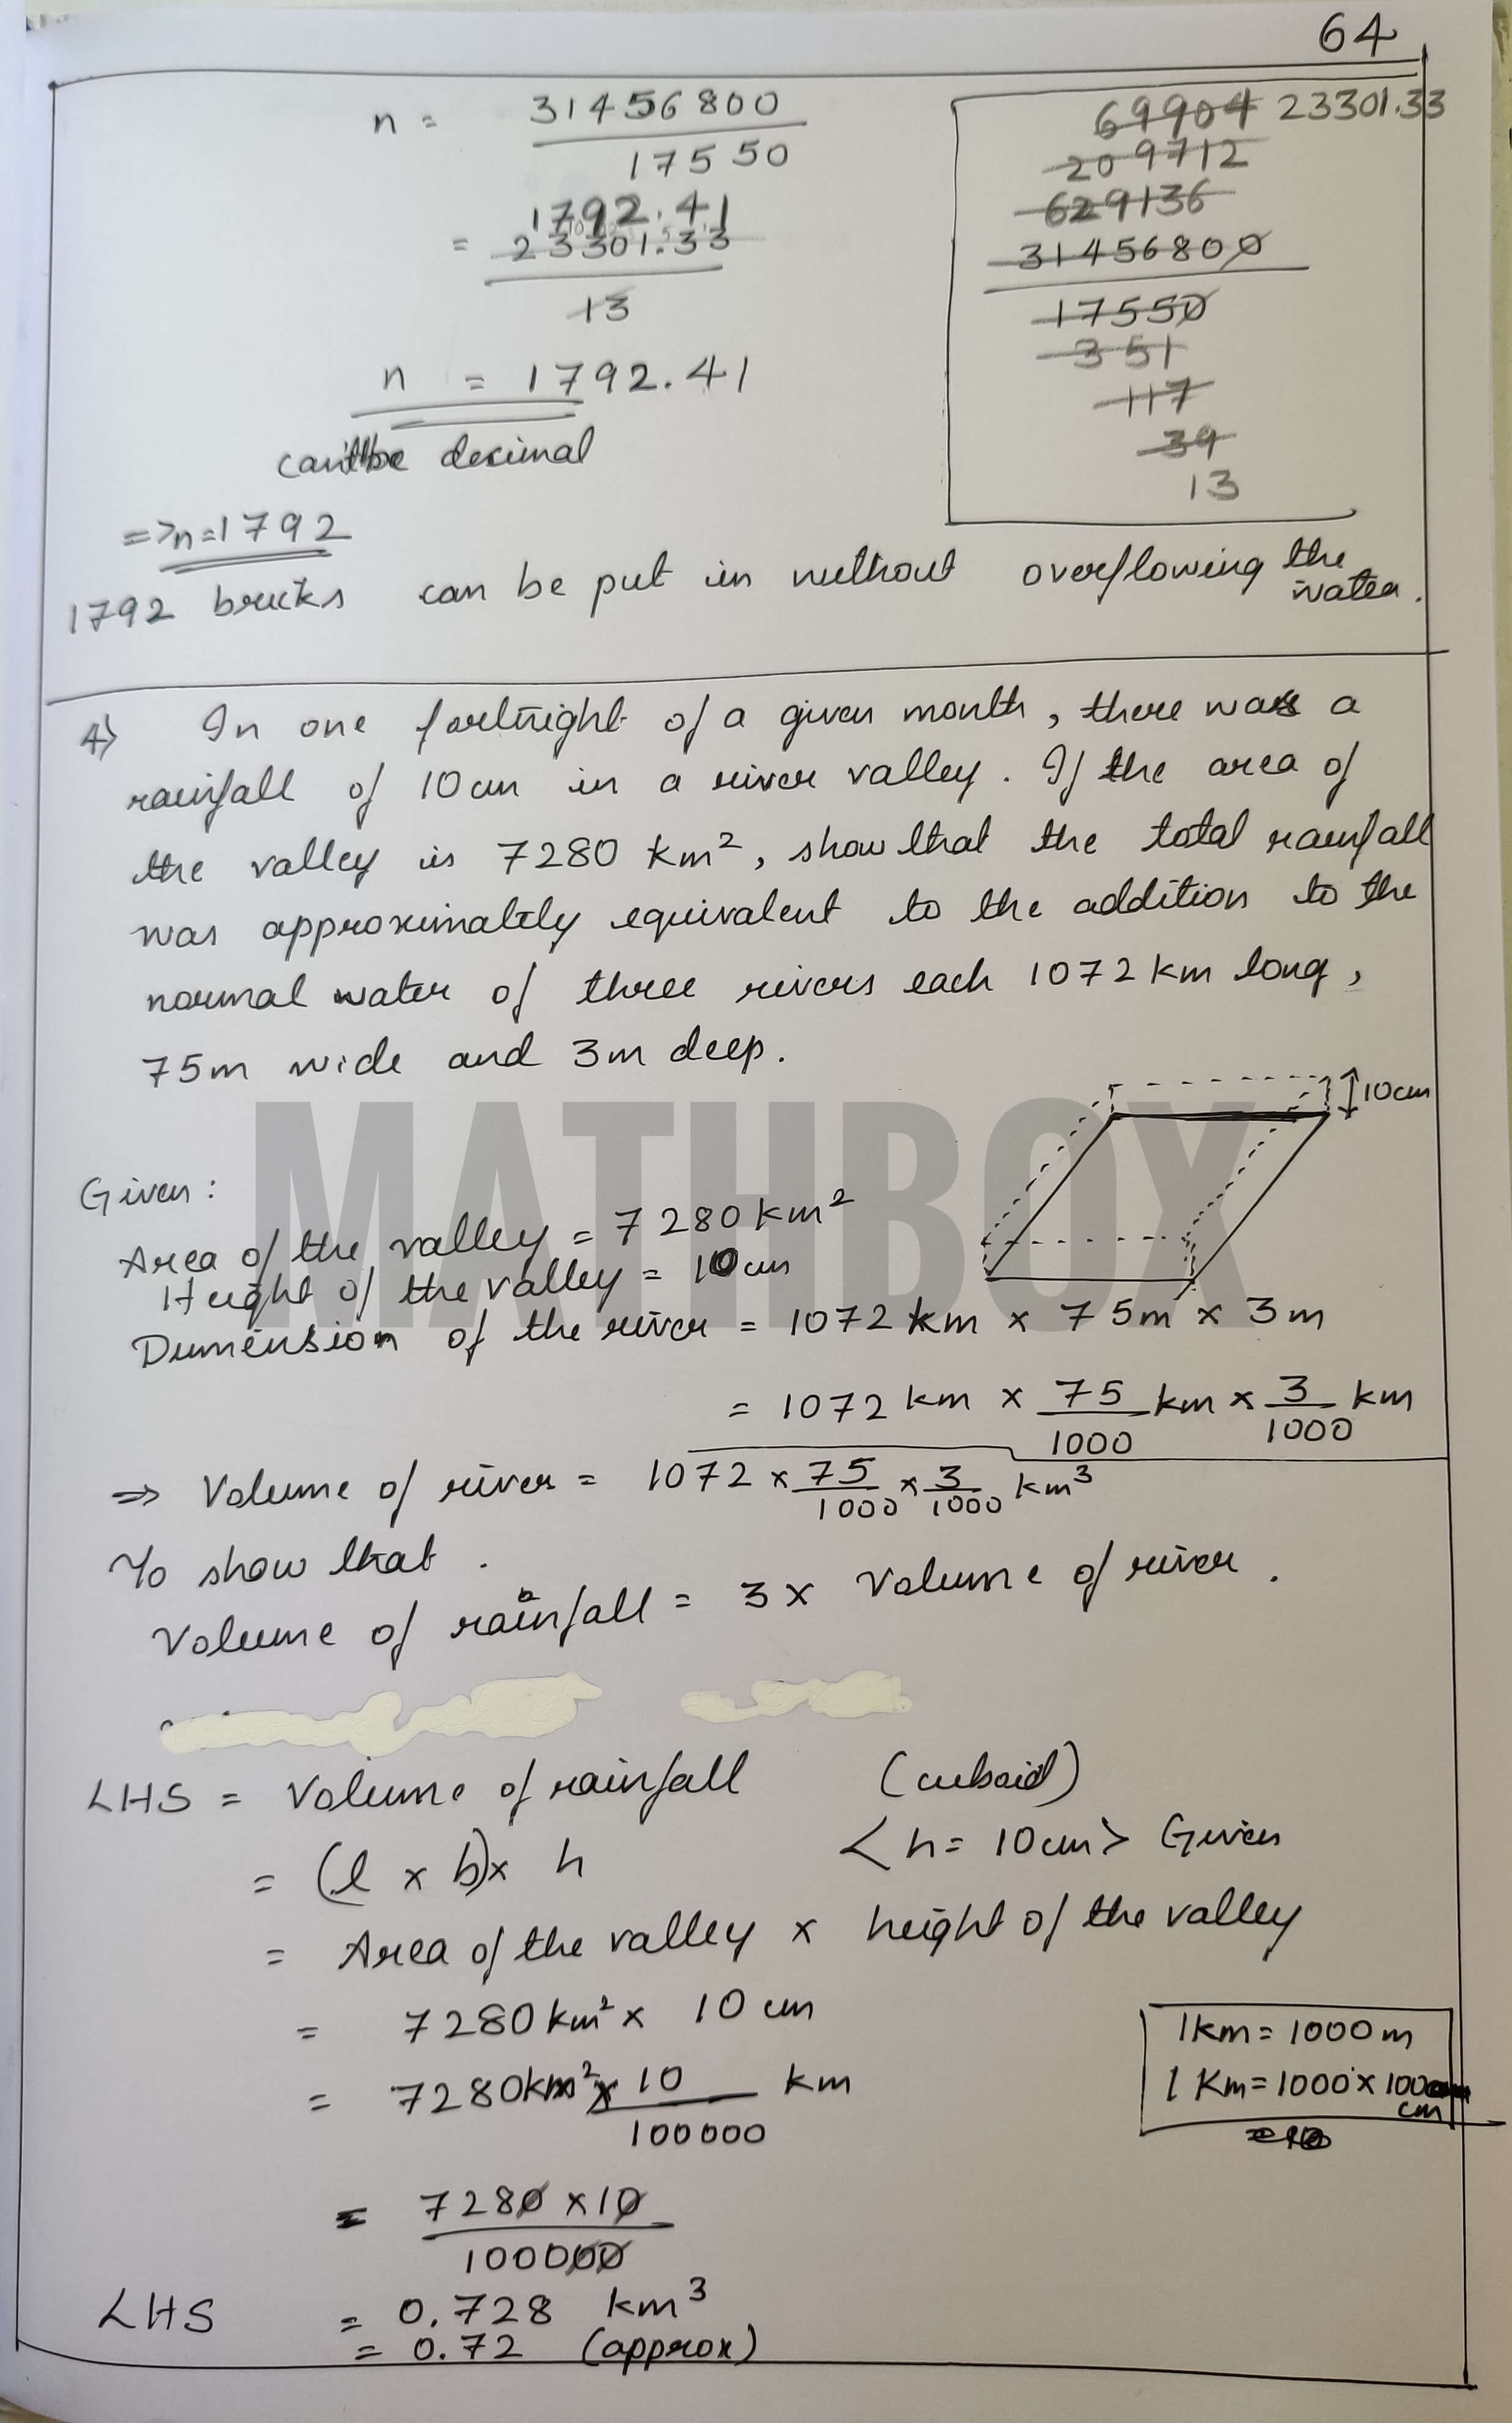 64
n = 31456800
17550
1792.41
= 23301.33
13
n = 1792.41
can't be decimal
=> n = 1792
1792 bricks can be put in without overflowing the water.
69904 23301.33
209712
629136
31456800
17550
351
117
39
13
4) In one fortnight of a given month, there was a
rainfall of 10cm in a river valley. If the area of
the valley is 7280 km², show that the total rainfall
was approximately equivalent to the addition to the
normal water of three rivers each 1072 km long,
75m wide and 3m deep.
10cm
MATHBOX
Given:
Area of the valley = 7280 km²
Height of the valley = 10cm
Dimension of the river = 1072 km × 75m × 3m
= 1072 km × 75/1000 km × 3/1000 km
=> Volume of river = 1072 × 75/1000 × 3/1000 km³
To show that .
Volume of rainfall = 3 × Volume of river.
LHS = Volume of rainfall (cuboid)
= (l × b) × h < h = 10cm > Given
= Area of the valley × height of the valley
= 7280 km² × 10 cm
= 7280km² × 10/100000 km
1km = 1000 m
1 Km = 1000 × 100 cm
= 7280 × 10
100000
LHS = 0.728 km³
= 0.72 (approx)